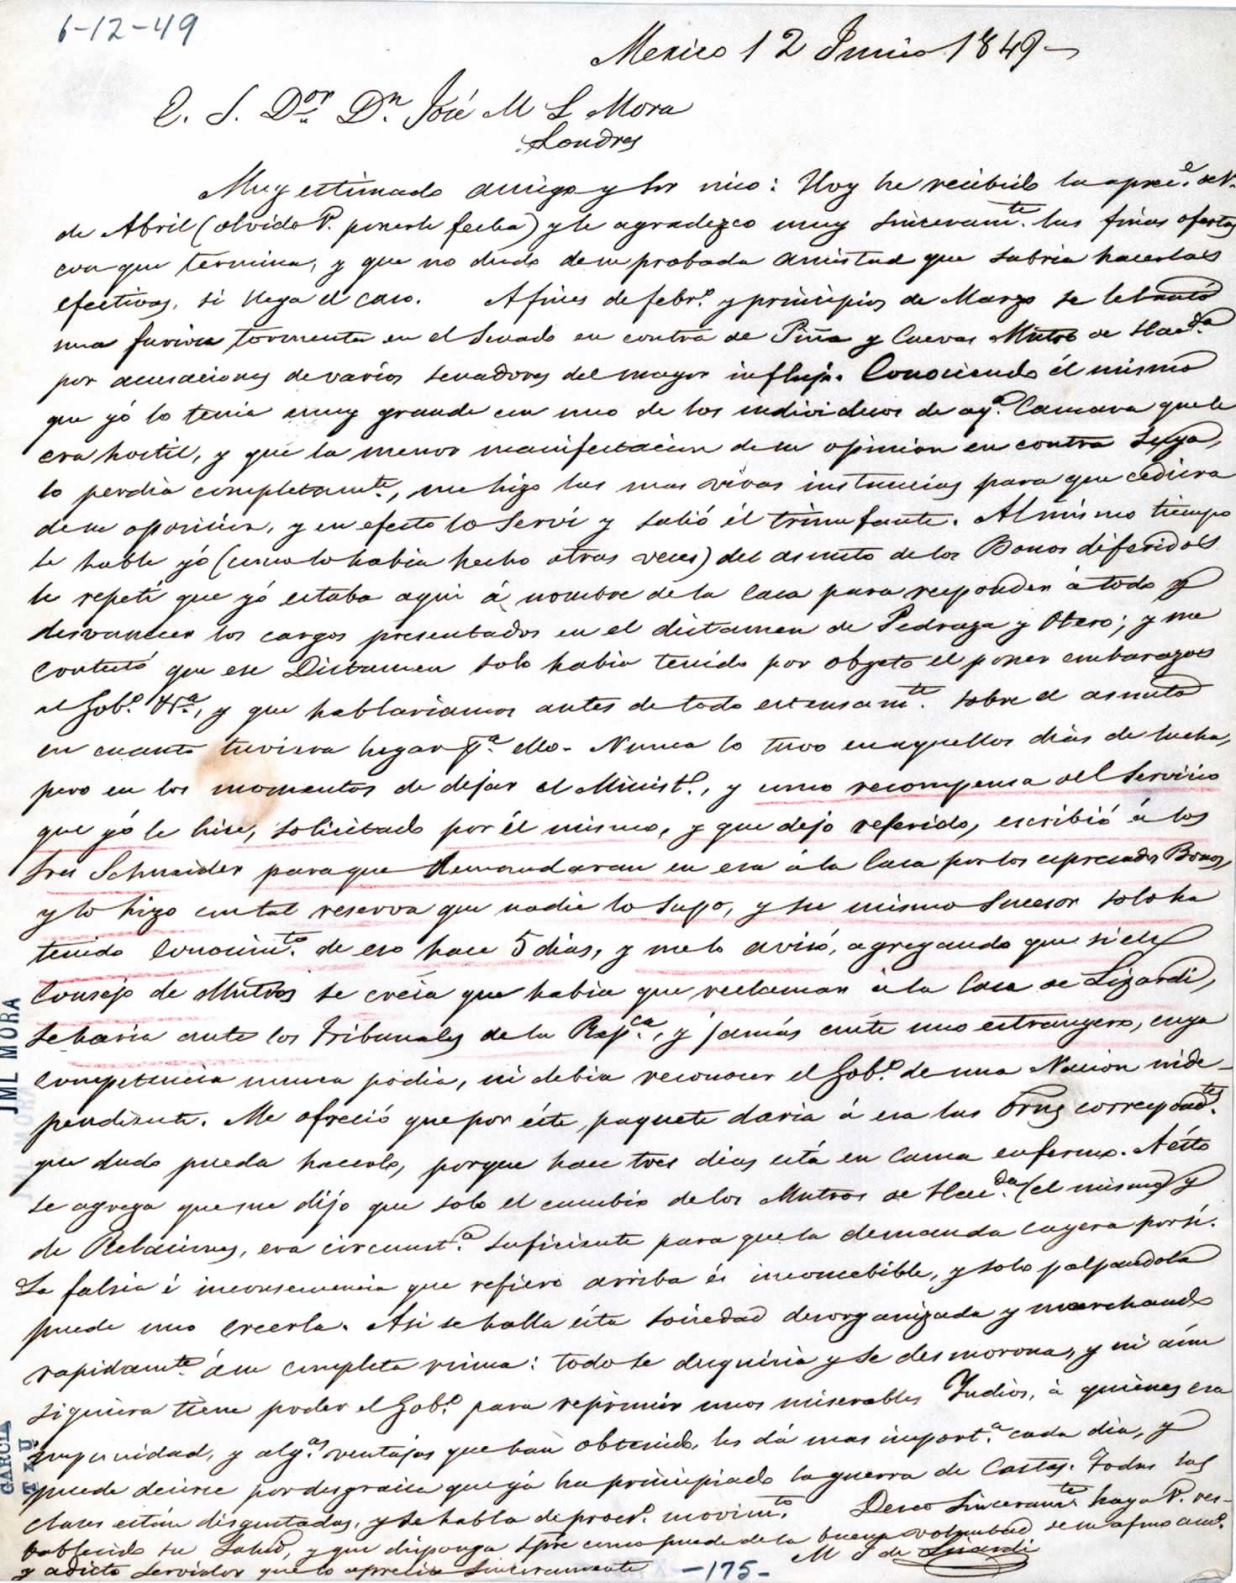 6-12-49
Mexico 12 Junio 1849
E. S. Dor. Dn. José M L Mora
Londres
Muy estimado amigo y Sor mio: Hoy he recibido la aprec.ª de V.
de Abril (olvidó V. ponerle fecha) y le agradezco muy sinceram.te las finas ofertas
con que termina, y que no dudo de su probada amistad que sabria hacerlas
efectivas, si llega el caso. A fines de febr.º y principios de Marzo se lebantó
una furiosa tormenta en el Senado en contra de Piña y Cuevas Mntro de Hac.da
por acusaciones de varios senadores del mayor influjo. Conociendo él mismo
que yó lo tenia muy grande con uno de los individuos de aq.ª Camara que le
era hostil, y que la menor manifestacion de su opinion en contra suya,
lo perdia completam.te, me hizo las mas vivas instancias para que cediera
de su oposicion, y en efecto lo serví y salió él triunfante. Al mismo tiempo
le hablé yó (como lo habia hecho otras veces) del asunto de los Bonos diferidos
le repetí que yó estaba aqui á nombre de la Casa para responder á todo y
desvanecer los cargos presentados en el dictamen de Pedraza y Otero; y me
contestó que ese Dictamen solo habia tenido por objeto el poner embarazos
al Gob.º Hr.ª, y que hablariamos antes de todo estensam.te sobre el asunto
en cuanto tuviera lugar p.ª ello. Nunca lo tuvo en aquellos dias de lucha,
pero en los momentos de dejar el Minist.º, y como recompensa del servicio
que yó le hice, solicitado por él mismo, y que dejo referido, escribió á los
Sres Schneider para que demandaran en esa á la Casa por los espresados Bonos,
y lo hizo con tal reserva que nadie lo supo, y su mismo sucesor solo ha
tenido conocim.to de eso hace 5 dias, y me lo avisó, agregando que si el
Consejo de Mntros se creia que habia que reclamar á la Casa de Lizardi,
se haria ante los Tribunales de la Rep.ca, y jamás ante uno estrangero, cuya
competencia nunca podia, ni debia reconocer el Gob.º de una Nacion inde-
pendiente. Me ofreció que por éste paquete daria á esa las Orns correspond.tes
que dudo pueda hacerlo, porque hace tres dias está en cama enfermo. A ésto
se agrega que me dijo que solo el cambio de los Mntros de Hac.da (el mismo) y
de Relaciones, era circunst.ª suficiente para que la demanda cayera por sí.
La falsia é inconsecuencia que refiero arriba és inconcebible, y solo palpandola
puede uno creerla. Asi se halla ésta sociedad desorganizada y marchando
rapidam.te á su completa ruina: todo se desquicia y se desmorona, y ni aún
siquiera tiene poder el Gob.º para reprimir unos miserables Indios, á quienes esa
impunidad, y alg.s ventajas que han obtenido, les dá mas import.ª cada dia, y
puede decirse por desgracia que yá ha principiado la guerra de Castas. Todas las
clases están disgustadas, y se habla de proxs.º movim.to Deseo sinceram.te haya V. res-
tablecido su salud, y que disponga spre como puede de la buena voluntad de su afmo am.º
y adicto servidor que lo aprecia sinceramente M J de Lizardi
-175-
JML MORA
GARCIA